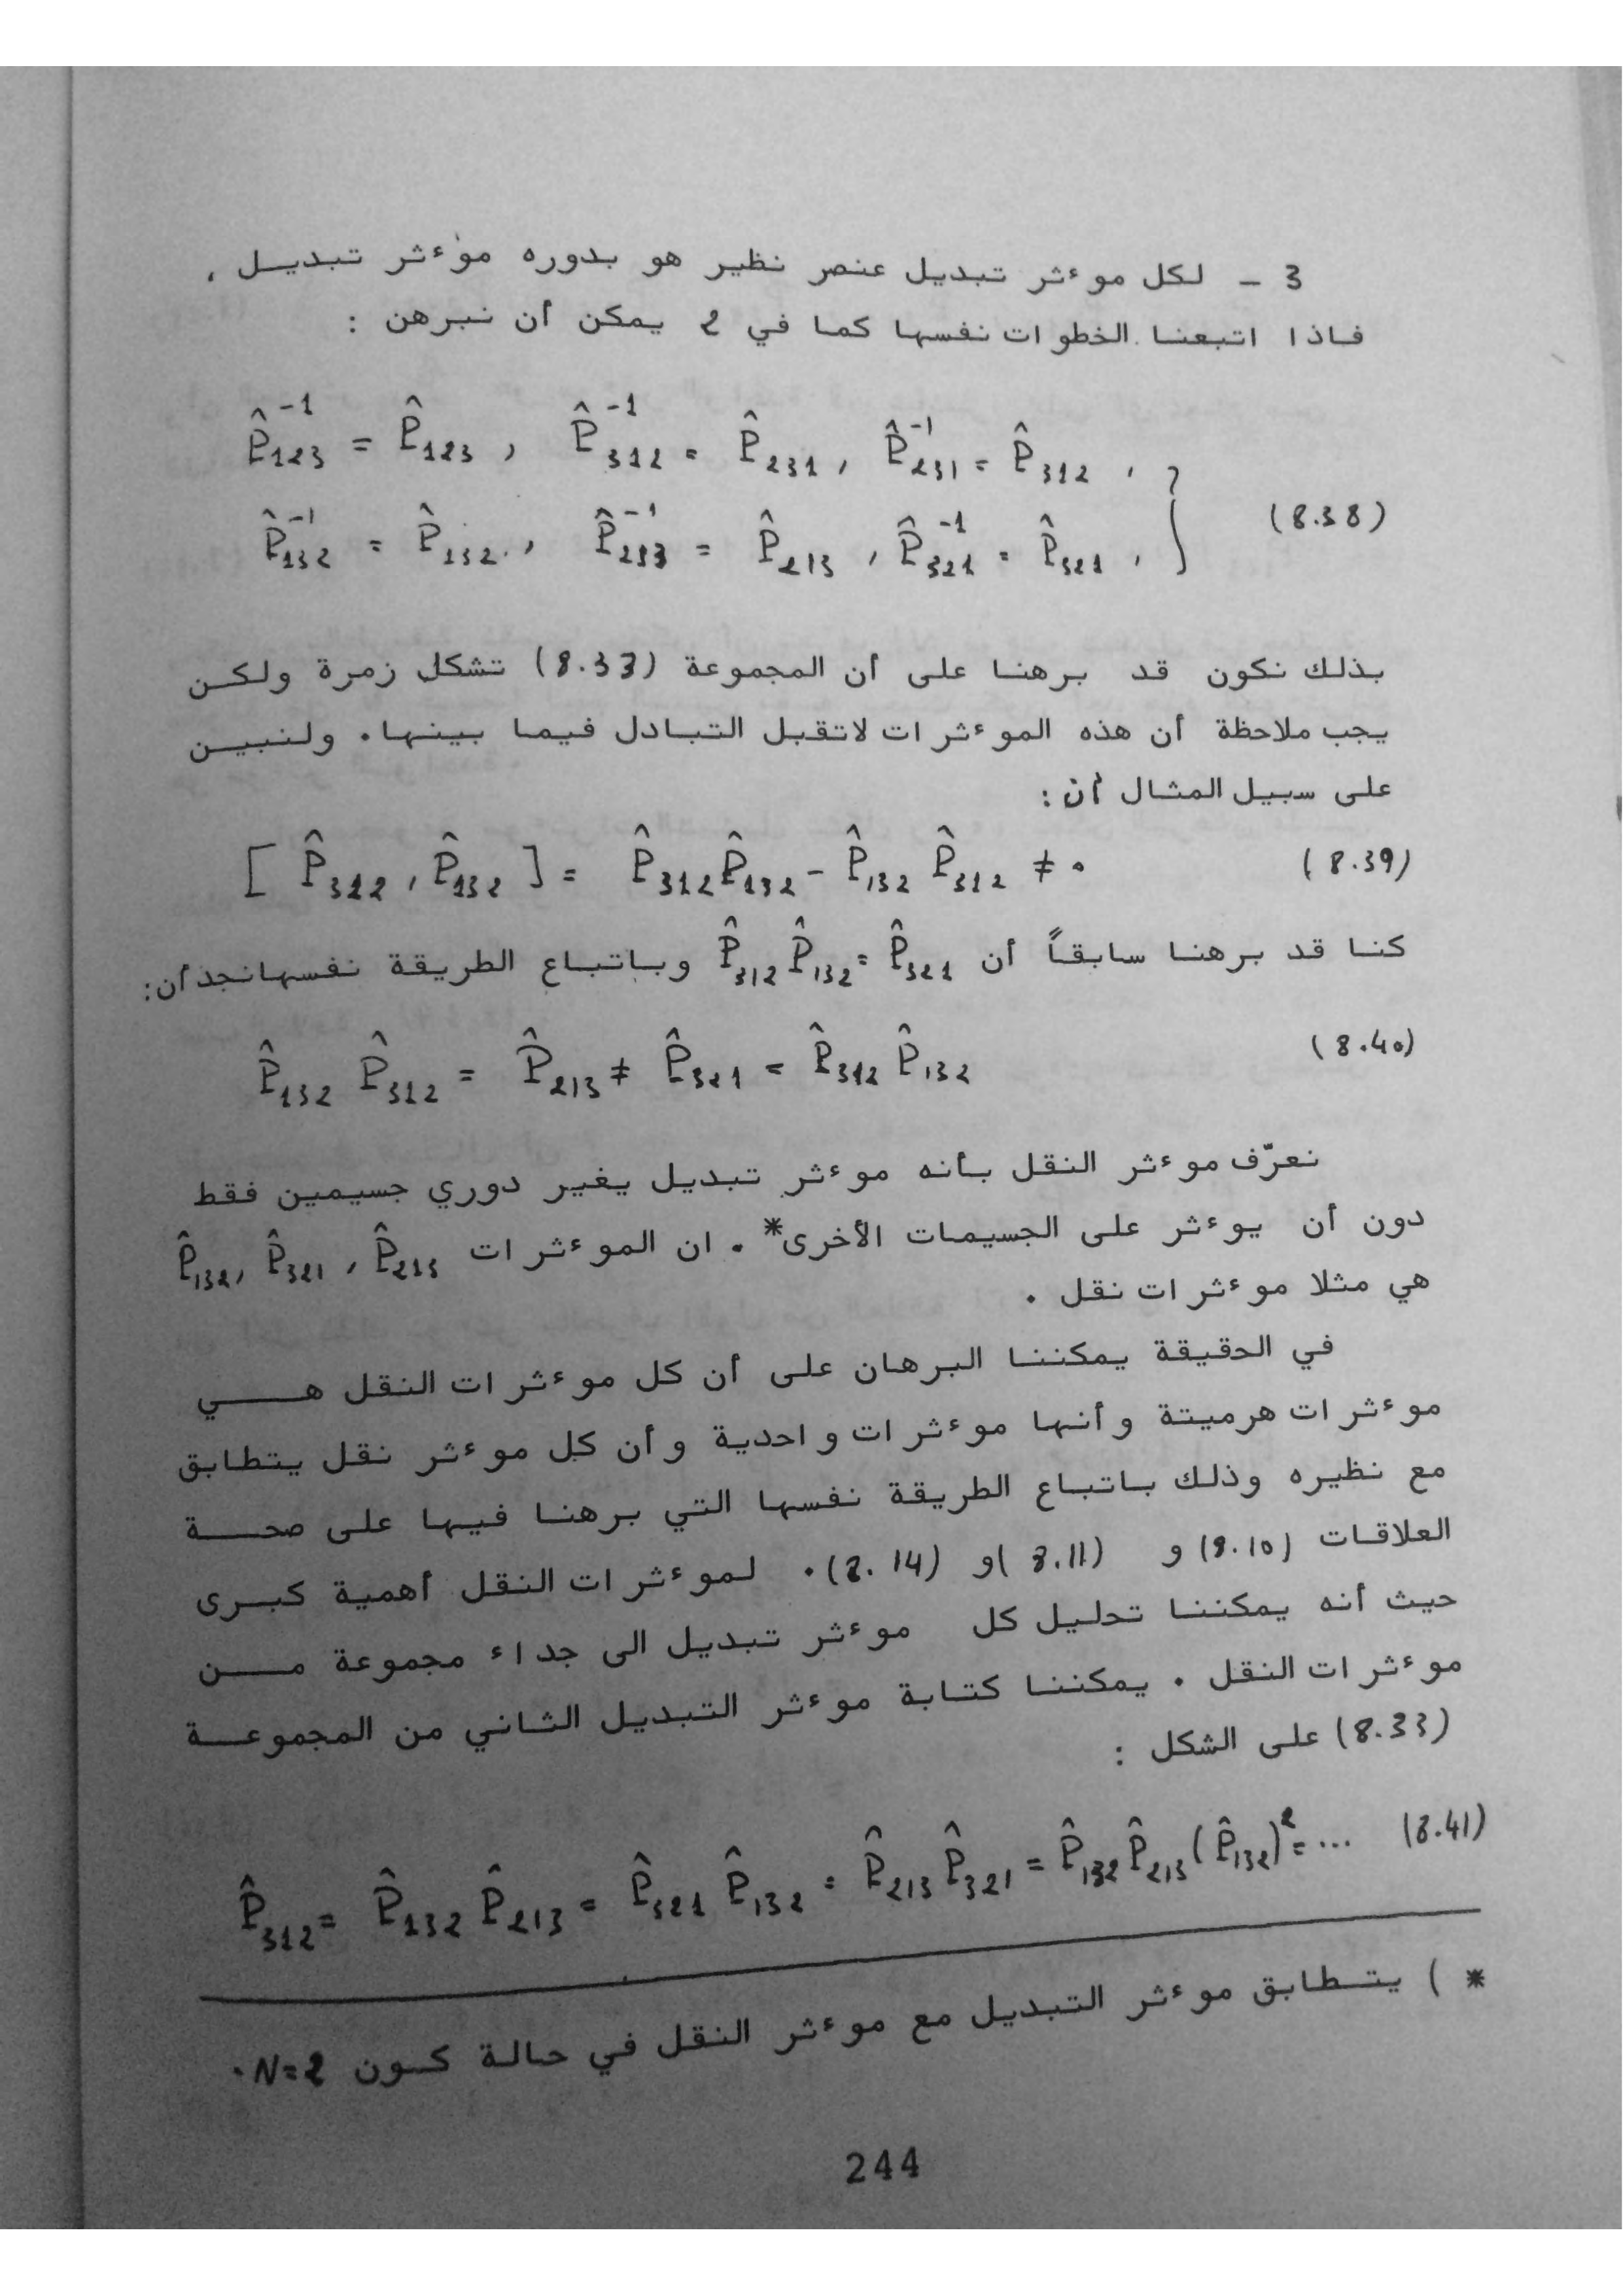 3 - لكل موءثر تبديل عنصر نظير هو بدوره موءثر تبديل ،
فاذا اتبعنا الخطوات نفسها كما في 2 يمكن أن نبرهن :
P̂₁₂₃⁻¹ = P̂₁₂₃ , P̂₃₁₂⁻¹ = P̂₂₃₁ , P̂₂₃₁⁻¹ = P̂₃₁₂ ,
(8.38)
P̂₁₃₂⁻¹ = P̂₁₃₂ , P̂₂₁₃⁻¹ = P̂₂₁₃ , P̂₃₂₁⁻¹ = P̂₃₂₁ ,
بذلك نكون قد برهنا على أن المجموعة (8.33) تشكل زمرة ولكن
يجب ملاحظة أن هذه الموءثرات لاتقبل التبادل فيما بينها. ولنبين
على سبيل المثال أن :
[ P̂₃₁₂ , P̂₁₃₂ ] = P̂₃₁₂ P̂₁₃₂ - P̂₁₃₂ P̂₃₁₂ ≠ 0 (8.39)
كنا قد برهنا سابقاً أن P̂₃₁₂ P̂₁₃₂ = P̂₃₂₁ وباتباع الطريقة نفسها نجد أن:
P̂₁₃₂ P̂₃₁₂ = P̂₂₁₃ ≠ P̂₃₂₁ = P̂₃₁₂ P̂₁₃₂ (8.40)
نعرّف موءثر النقل بأنه موءثر تبديل يغير دوري جسيمين فقط
دون أن يوءثر على الجسيمات الأخرى* . ان الموءثرات P̂₁₃₂, P̂₃₂₁ , P̂₂₁₃
هي مثلا موءثرات نقل .
في الحقيقة يمكننا البرهان على أن كل موءثرات النقل هي
موءثرات هرميتة وأنها موءثرات واحدية وأن كل موءثر نقل يتطابق
مع نظيره وذلك باتباع الطريقة نفسها التي برهنا فيها على صحة
العلاقات (8.10) و (8.11) و (8.14) . لموءثرات النقل أهمية كبرى
حيث أنه يمكننا تحليل كل موءثر تبديل الى جداء مجموعة من
موءثرات النقل . يمكننا كتابة موءثر التبديل الثاني من المجموعة
(8.33) على الشكل :
P̂₃₁₂ = P̂₁₃₂ P̂₂₁₃ = P̂₃₂₁ P̂₁₃₂ = P̂₂₁₃ P̂₃₂₁ = P̂₁₃₂ P̂₂₁₃ (P̂₁₃₂)² = ... (8.41)
* ) يتطابق موءثر التبديل مع موءثر النقل في حالة كون N=2 .
244